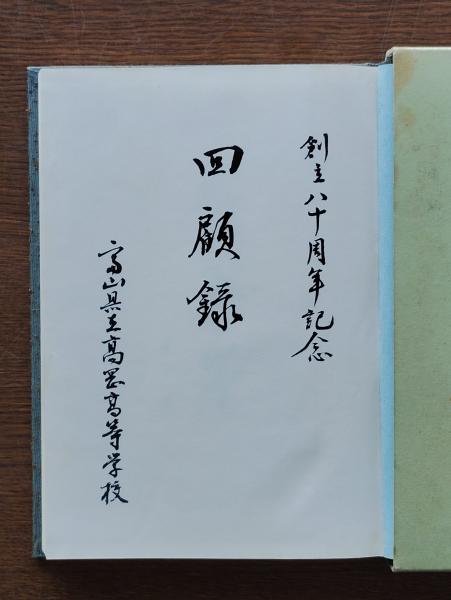 創立八十周年記念
回顧録
富山県立高岡高等学校